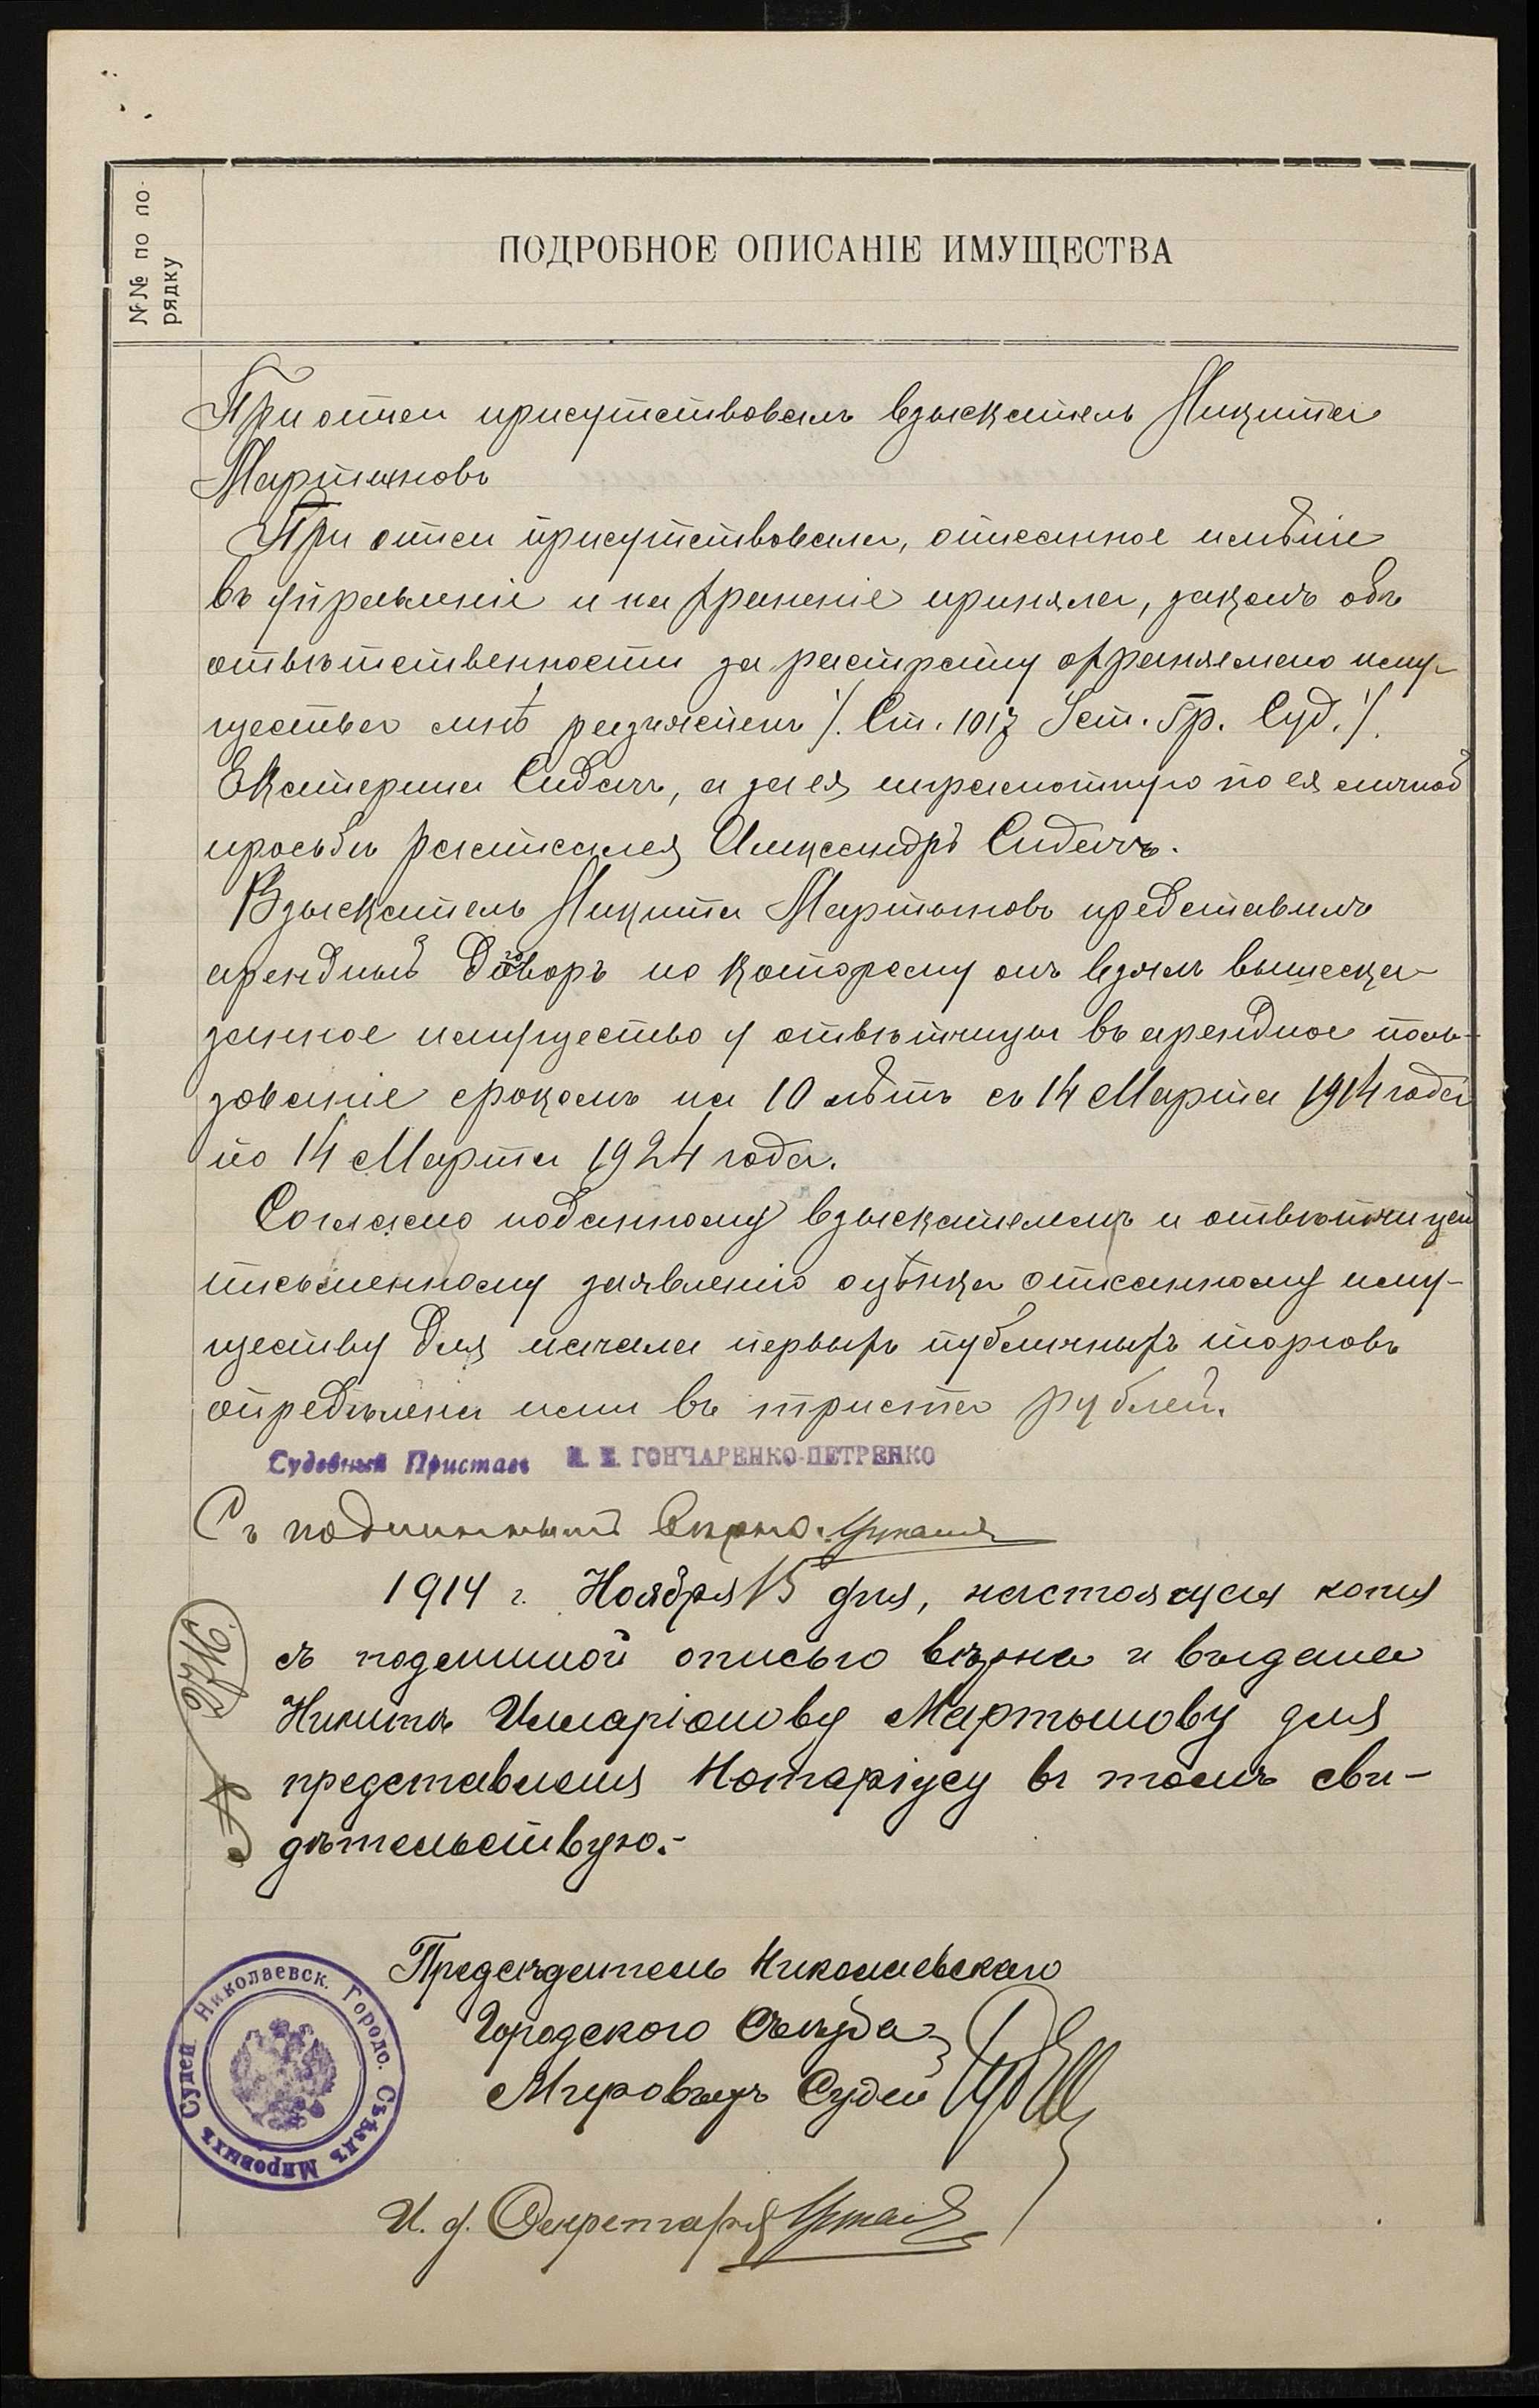 №№ по по-
рядку
ПОДРОБНОЕ ОПИСАНІЕ ИМУЩЕСТВА
При описи присутствовалъ взыскатель Никита
Мартыновъ
При описи присутствовала, описанное имѣніе
въ управленіе и на храненіе приняла, законъ объ
отвѣтственности за растрату охраняемаго иму-
щества мнѣ разъясненъ /. Ст. 1017 Уст. Гр. Суд. /.
Екатерина Сидачъ, а за ея неграмотную по ея личной
просьбѣ расписался Александръ Сидачъ.
Взыскатель Никита Мартыновъ представилъ
арендный договоръ по которому онъ взялъ вышеска-
занное имущество у отвѣтчицы въ арендное поль-
зованіе срокомъ на 10 лѣтъ съ 14 Марта 1914 года
по 14 Марта 1924 года.
Согласно поданному взыскателемъ и отвѣтчицей
письменному заявленію оцѣнка описанному иму-
ществу для начала первыхъ публичныхъ торговъ
опредѣлена ими въ триста рублей.
Судебный Приставъ И. И. ГОНЧАРЕНКО-ПЕТРЕНКО
Съ подлиннымъ вѣрно.
1914 г. Ноября 15 дня, настоящая копія
съ подлинной описью вѣрна и выдана
Никитѣ Илларіонову Мартынову для
представленія Нотаріусу въ томъ сви-
дѣтельствую.-
№ 2716.
Предсѣдатель Николаевскаго
Городского Съѣзда
Мировыхъ Судей
Николаевск. Городо. Съѣздъ Мировыхъ Судей
И. д. Секретаря